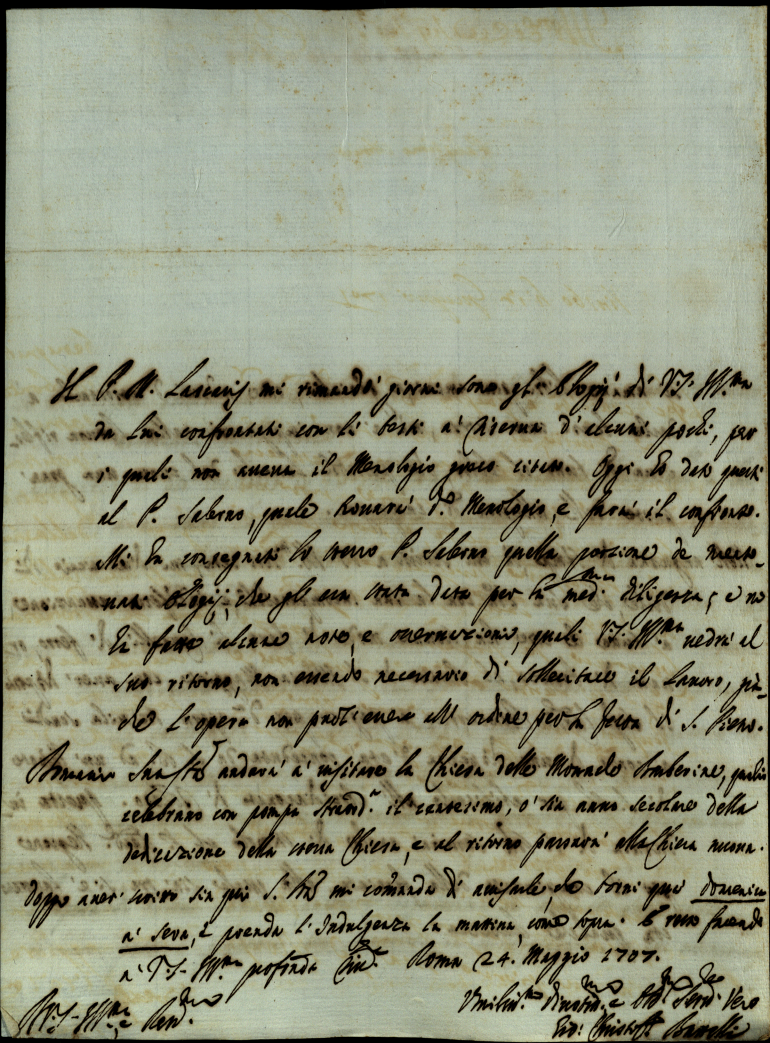 Il P. M. mi rimandò giorni sono gl' Elogij di V.S. Ill.ma
da lui confrontati con li testi à riserua d'alcuni pochi, per
i quali non aueua il Menologio greco citato. Oggi hò dato questi
al P. Salerno, quale trouarà d.o Menologio, e farà il confronto.
Mi hà consegnati lo stesso P. Salerno quella porzione de mento-
uati Elogij, che gli era stata data per la med.ma diligenza; e ne
hà fatto alcune note, e osseruazioni, quali V.S. Ill.ma uedrà al
suo ritorno, non essendo necessario di sollecitare il lauoro, già
che l'opera non può essere all' ordine per la festa di S. Pietro.
Domenica Sua S.tà andarà à uisitare la Chiesa delle Monache Barberine, quali
celebrano con pompa straord.a il centesimo, ò sia anno secolare della
dedicazione della stessa Chiesa, e al ritorno passarà alla Chiesa nuoua.
Doppo auer scritto sin qui S. S.tà mi comanda di auisarle, che torni quà domenica
à sera, e prenda l'Indulgenza la mattina, come sopra. E resto facendo
à V.S. Ill.ma profonda Riu.a Roma 24. Maggio 1707.
Di V.S. Ill.ma e Reu.ma
Vmiliss.mo Diuotiss.mo e Obl. Seru. Vero